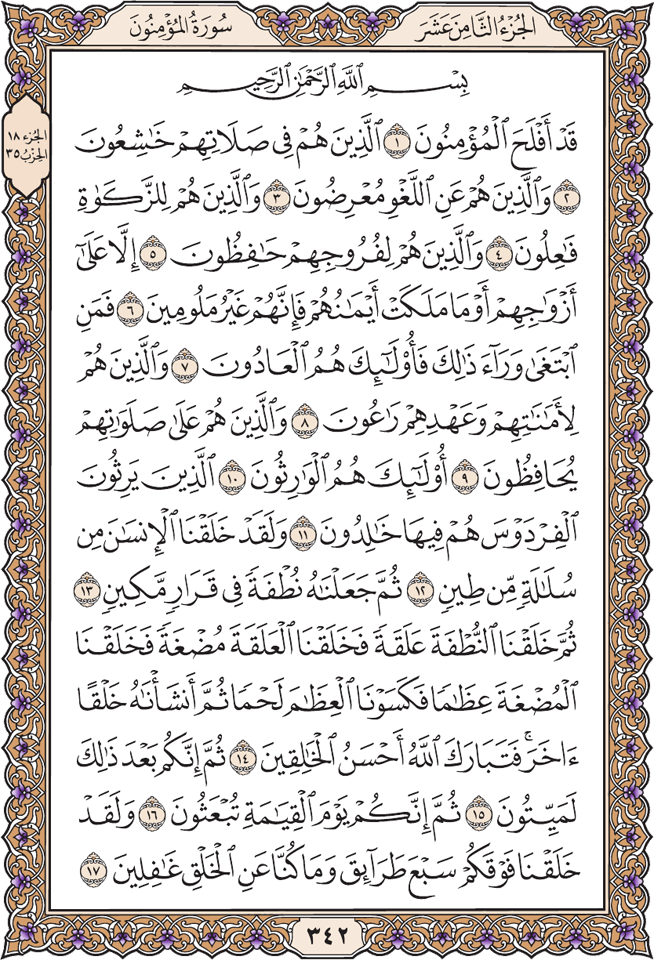 الجُزْءُ الثَّامِنَ عَشَرَ
سُورَةُ المُؤْمِنُونَ
الجزء ١٨
الحزب ٣٥
بِسْمِ اللَّهِ الرَّحْمَٰنِ الرَّحِيمِ
قَدْ أَفْلَحَ الْمُؤْمِنُونَ ١ الَّذِينَ هُمْ فِي صَلَاتِهِمْ خَاشِعُونَ
٢ وَالَّذِينَ هُمْ عَنِ اللَّغْوِ مُعْرِضُونَ ٣ وَالَّذِينَ هُمْ لِلزَّكَوٰةِ
فَاعِلُونَ ٤ وَالَّذِينَ هُمْ لِفُرُوجِهِمْ حَافِظُونَ ٥ إِلَّا عَلَىٰٓ
أَزْوَاجِهِمْ أَوْ مَا مَلَكَتْ أَيْمَانُهُمْ فَإِنَّهُمْ غَيْرُ مَلُومِينَ ٦ فَمَنِ
ابْتَغَىٰ وَرَآءَ ذَٰلِكَ فَأُولَٰٓئِكَ هُمُ الْعَادُونَ ٧ وَالَّذِينَ هُمْ
لِأَمَانَاتِهِمْ وَعَهْدِهِمْ رَاعُونَ ٨ وَالَّذِينَ هُمْ عَلَىٰ صَلَوَاتِهِمْ
يُحَافِظُونَ ٩ أُولَٰٓئِكَ هُمُ الْوَارِثُونَ ١٠ الَّذِينَ يَرِثُونَ
الْفِرْدَوْسَ هُمْ فِيهَا خَالِدُونَ ١١ وَلَقَدْ خَلَقْنَا الْإِنسَانَ مِن
سُلَالَةٍ مِّن طِينٍ ١٢ ثُمَّ جَعَلْنَاهُ نُطْفَةً فِي قَرَارٍ مَّكِينٍ ١٣
ثُمَّ خَلَقْنَا النُّطْفَةَ عَلَقَةً فَخَلَقْنَا الْعَلَقَةَ مُضْغَةً فَخَلَقْنَا
الْمُضْغَةَ عِظَامًا فَكَسَوْنَا الْعِظَامَ لَحْمًا ثُمَّ أَنشَأْنَاهُ خَلْقًا
ءَاخَرَ ۚ فَتَبَارَكَ اللَّهُ أَحْسَنُ الْخَالِقِينَ ١٤ ثُمَّ إِنَّكُم بَعْدَ ذَٰلِكَ
لَمَيِّتُونَ ١٥ ثُمَّ إِنَّكُمْ يَوْمَ الْقِيَامَةِ تُبْعَثُونَ ١٦ وَلَقَدْ
خَلَقْنَا فَوْقَكُمْ سَبْعَ طَرَآئِقَ وَمَا كُنَّا عَنِ الْخَلْقِ غَافِلِينَ ١٧
٣٤٢